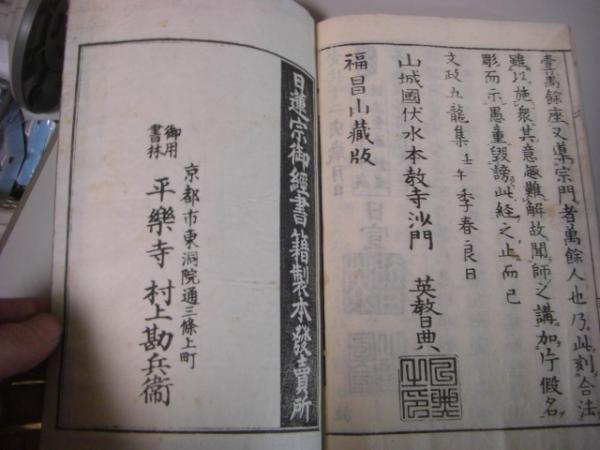 壹萬餘座又導宗門者萬餘人也乃此刻合法
雖以施衆其意趣難解故聞師之講加片假名
彫而示愚童毀謗此経之止而已
文政五龍集壬午季春良日
山城國伏水本教寺沙門 英教日典
福昌山藏版
日蓮宗御經書籍製本發賣所
京都市東洞院通三條上町
御用書林 平樂寺 村上勘兵衞